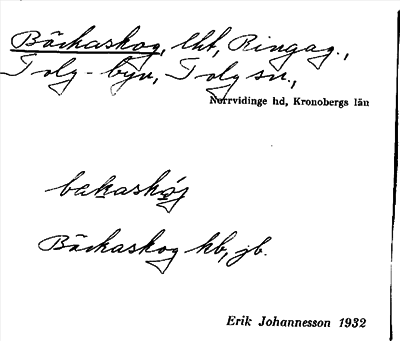 Böckaskog, lht, Ringag.,
Tolg-byn, Tolg sn.,
Norrvidinge hd, Kronobergs län
bækaskóg
Böckaskog kb, jb.
Erik Johannesson 1932